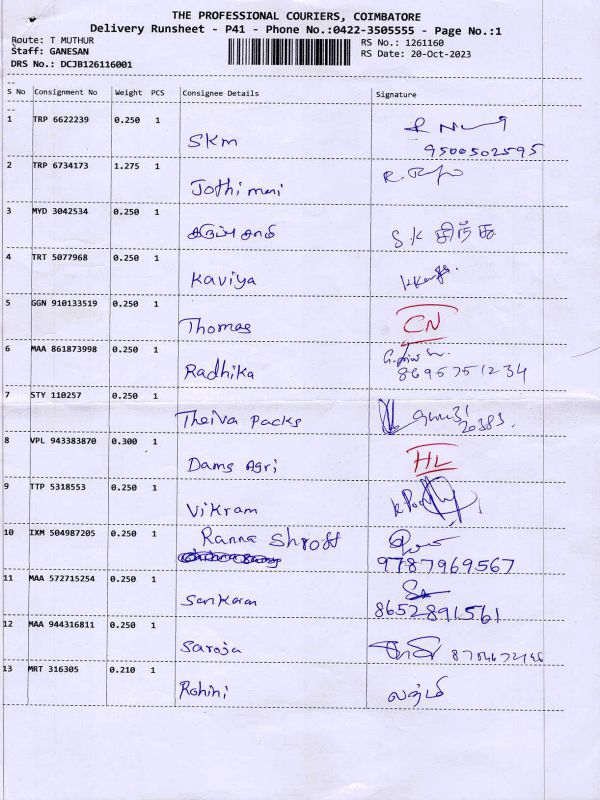 THE PROFESSIONAL COURIERS, COIMBATORE
Delivery Runsheet - P41 - Phone No.:0422-3505555 - Page No.:1
Route: T MUTHUR
RS No.: 1261160
Staff: GANESAN
RS Date: 20-Oct-2023
DRS No.: DCJB126116001
S No Consignment No Weight PCS Consignee Details Signature
1 TRP 6622239 0.250 1
SKM 9500502595
2 TRP 6734173 1.275 1
Jothimani
3 MYD 3042534 0.250 1
கருப்பசாமி S.K
4 TRT 5077968 0.250 1
Kaviya
5 GGN 910133519 0.250 1
Thomas CN
6 MAA 861873998 0.250 1
Radhika 8695751234
7 STY 110257 0.250 1
Theiva Packs 20383
8 VPL 943383870 0.300 1
Dams Agri HL
9 TTP 5318553 0.250 1
Vikram
10 IXM 504987205 0.250 1
Ranna Shroff
9787969567
11 MAA 572715254 0.250 1
Sankaran 8652891561
12 MAA 944316811 0.250 1
Saroja
13 MRT 316305 0.210 1
Rohini